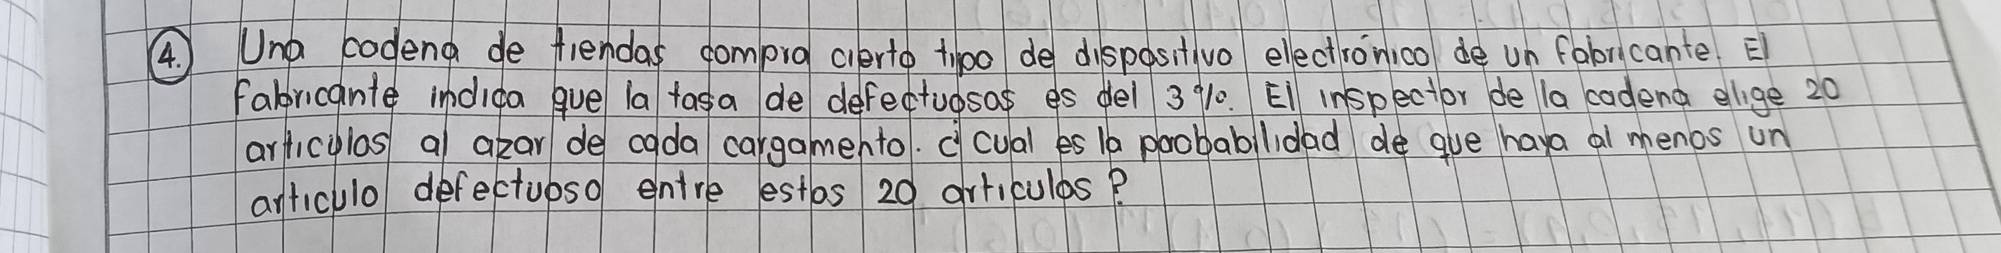 4. Una cadena de tiendas compra cierto tipo de dispositivo electrónico de un fabricante. El
fabricante indica que la tasa de defectuosas es del 3%. El inspector de la cadena elige 20
artículos al azar de cada cargamento. ¿Cual es la probabilidad de que haya al menos un
artículo defectuoso entre estos 20 artículos?